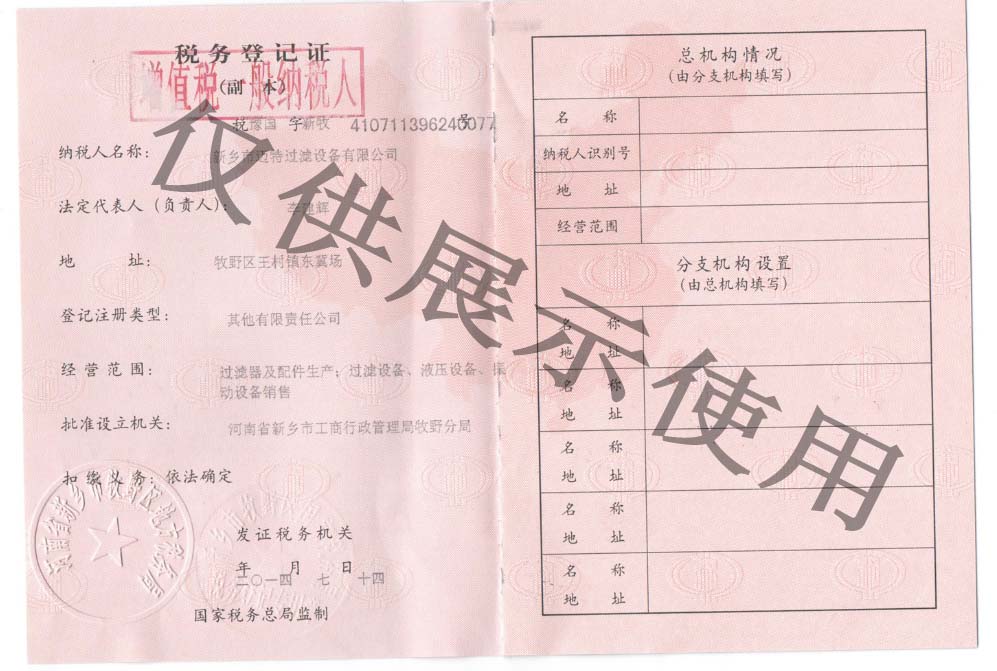 税务登记证
增值税一般纳税人
(副 本)
税豫国 字新牧 410711396240077 号
纳税人名称: 新乡市迈特过滤设备有限公司
法定代表人(负责人): 李建辉
地 址: 牧野区王村镇东冀场
登记注册类型: 其他有限责任公司
经营范围: 过滤器及配件生产;过滤设备、液压设备、振
动设备销售
批准设立机关: 河南省新乡市工商行政管理局牧野分局
扣缴义务:依法确定
发证税务机关
年 月 日
二〇一四 七 十四
国家税务总局监制
总机构情况
(由分支机构填写)
名 称
纳税人识别号
地 址
经营范围
分支机构设置
(由总机构填写)
名 称
地 址
名 称
地 址
名 称
地 址
名 称
地 址
名 称
地 址
仅供展示使用